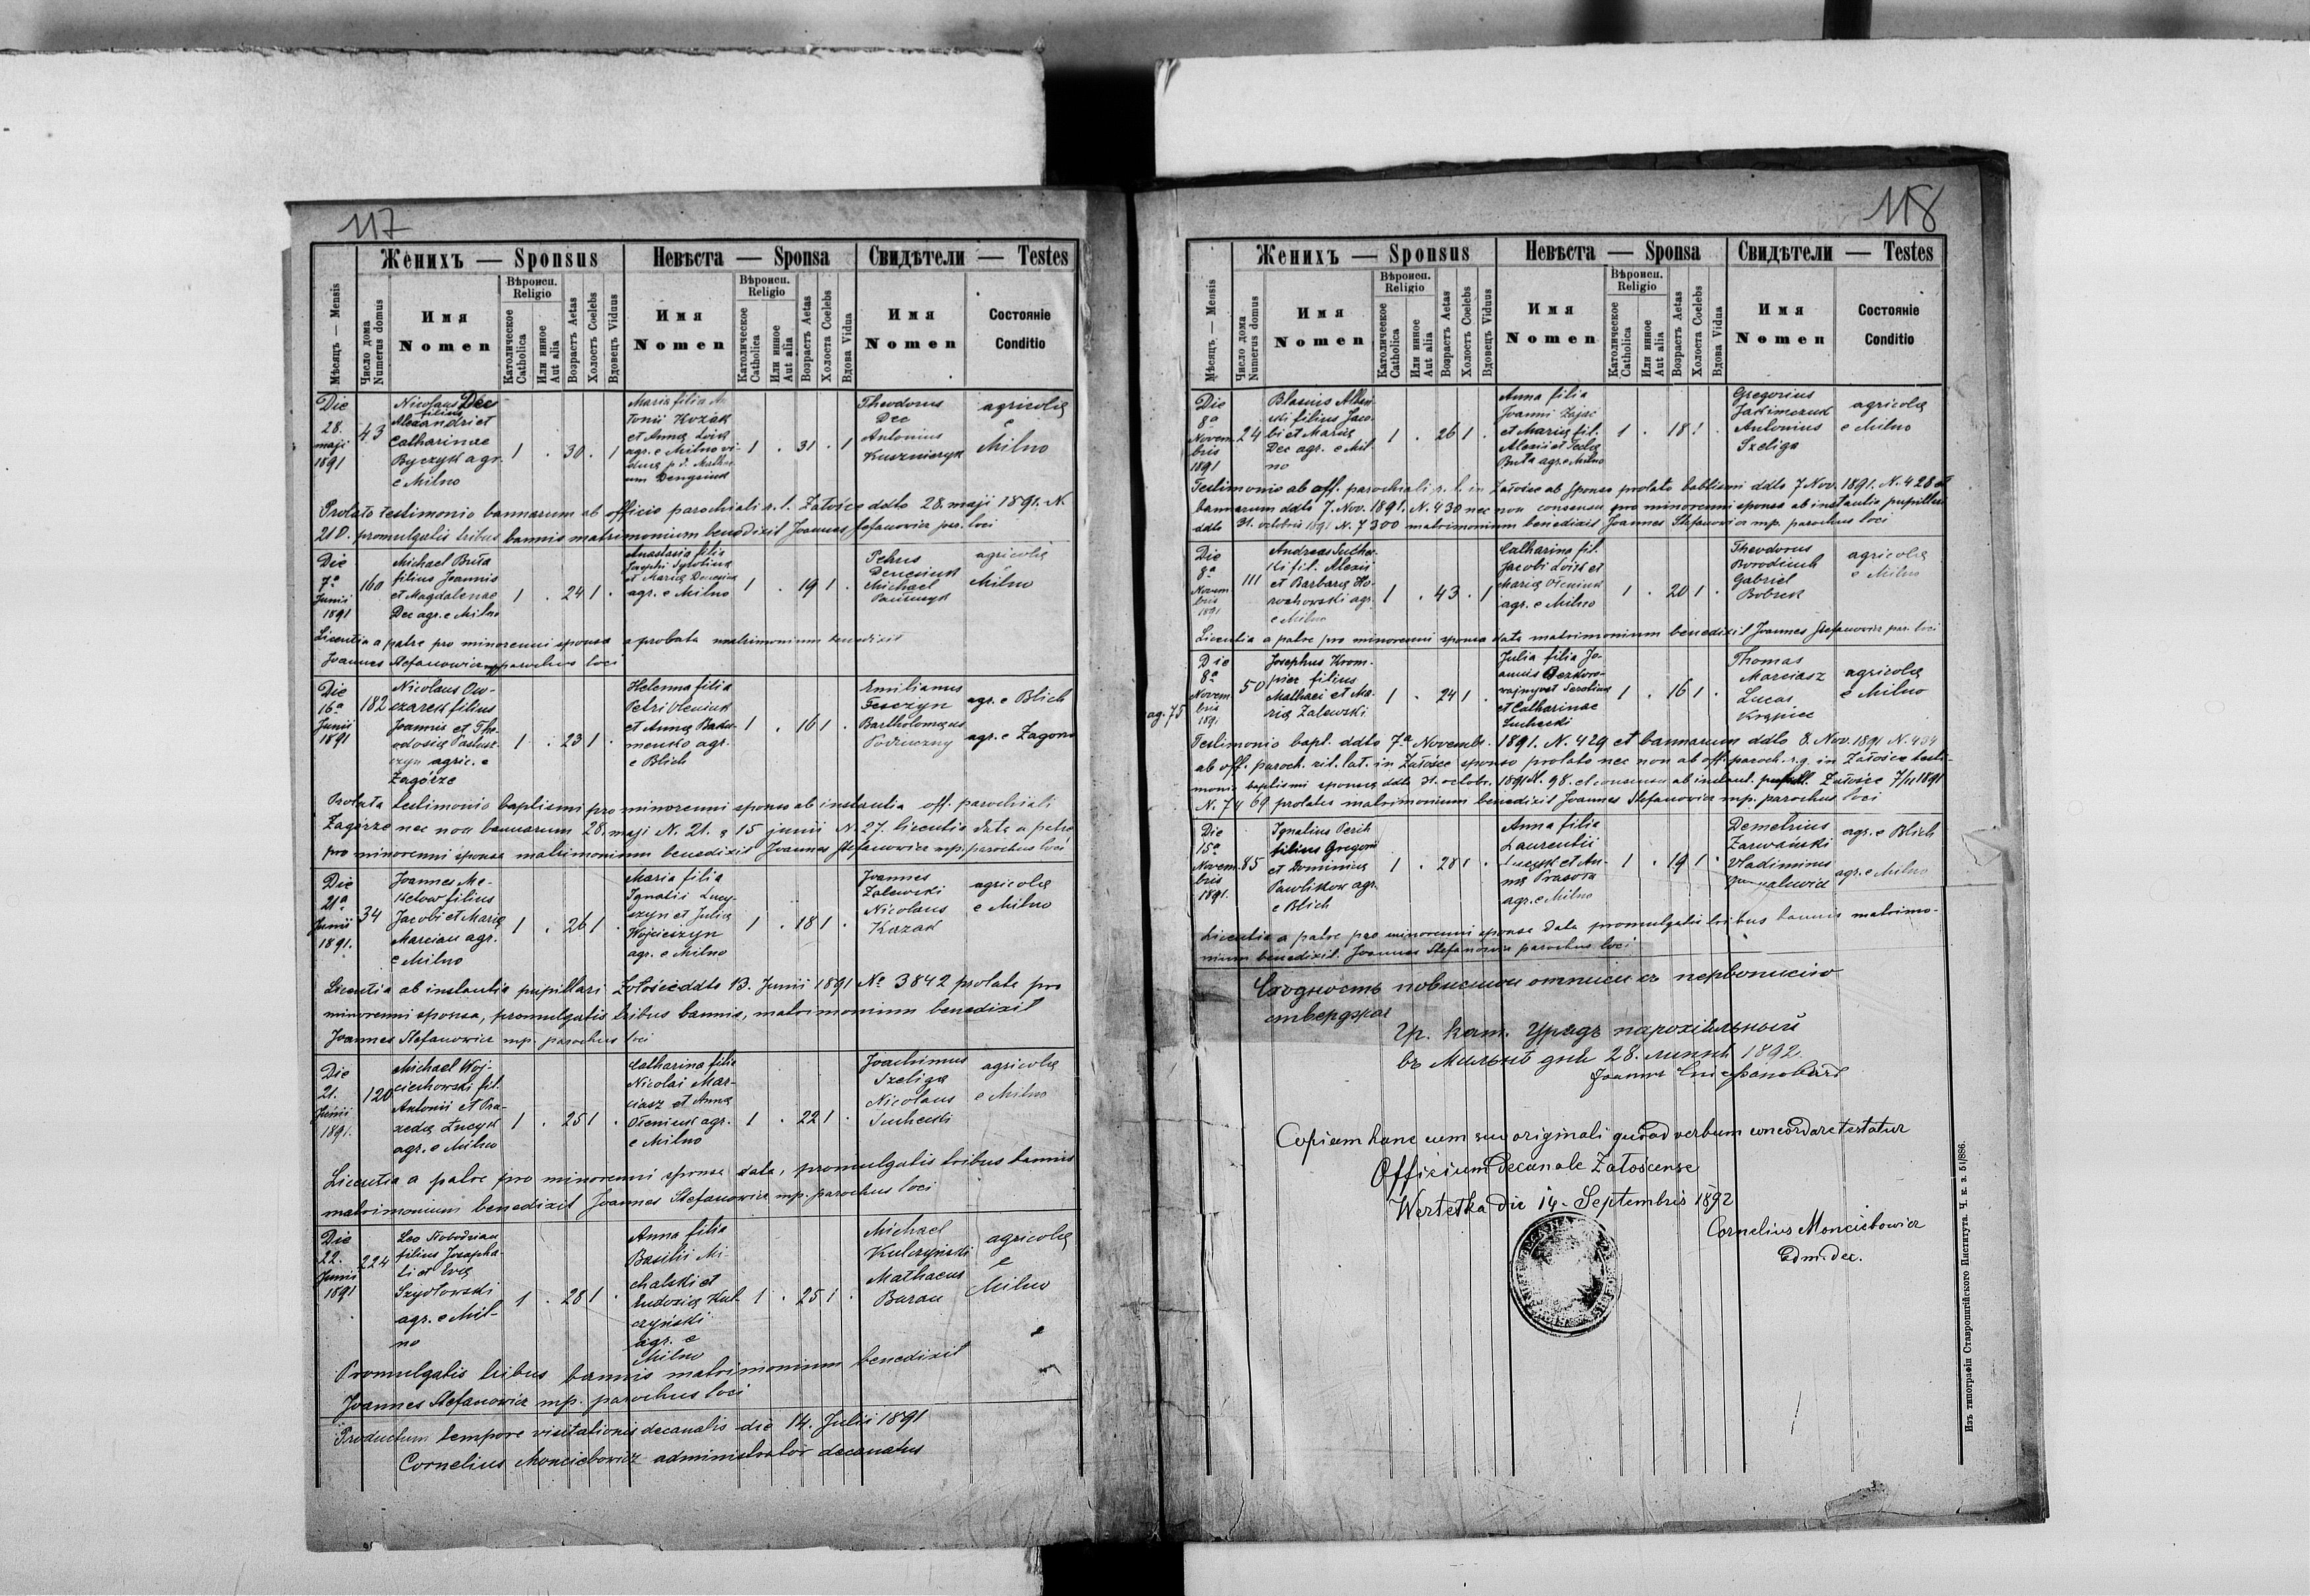 117
Женихъ — Sponsus
Невѣста — Sponsa
Свидѣтели — Testes
Мѣсяцъ — Mensis
Число дома
Numerus domus
Имя
Nomen
Вѣроисп.
Religio
Католическое
Catholica
Или инное
Aut alia
Возрастъ Aetas
Холостъ Coelebs
Вдовецъ Viduus
Имя
Nomen
Вѣроисп.
Religio
Католическое
Catholica
Или инное
Aut alia
Возрастъ Aetas
Холоста Coelebs
Вдова Vidua
Имя
Nomen
Состояніе
Conditio
Die
28.
maji
1891
43
Nicolaus Dec
filius
Alexandri et
Catharinae
Byczyk agr.
e Milno
1 . 30 . 1
Maria filia An
tonii Kozak
et Annę Łoik
agr. e Milno vi-
dua p. d.
um Dengsiuk
1 . 31 . 1
Theodorus
Dec
Antonius
Kusznieryk
agricolę
e
Milno
Prolato testimonio bannarum ab officio parochiali r. l. Załośce ddto 28. maji 1891. N.
210. promulgatis tribus bannis matrimonium benedixit Joannes Stefanowicz par. loci
Die
7ª
Junii
1891
160
Michael Buta
filius Joannis
et Magdalenae
Dec agr. e Milno
1 . 24 1 .
Anastasia filia
Josephi
et Marię Denesiuk
agr. e Milno
1 . 19 1 .
Petrus
Denesiuk
Michael
agricolę
e
Milno
Licentia a patre pro minorenni sponsa aprobata matrimonium benedixit
Joannes Stefanowicz mp parochus loci
Die
16ª
Junii
1891
182
Nicolaus Ow-
czarek filius
Joannis et The
odosię Pastusz-
czyn agric. e
Zagórze
1 . 23 1 .
Helenna filia
Petri Oleniuk
et Annę
agr.
e Blich
1 . 16 1 .
Emilianus
Feszczyn
Bartholomęus
Podruczny
agr. e Blich
agr. e Zagorze
Prolata testimonio baptismi pro minorenni sponso ab instantia off. parochiali
Zagórze nec non bannarum 28. maji N. 21. & 15 junii N. 27. licentia data a patre
pro minorenni sponsa matrimonium benedixit Joannes Stefanowicz mp. parochus loci
Die
21ª
Junii
1891.
34
Joannes Me-
ketow filius
Jacobi et Marię
Marcian agr.
e Milno
1 . 26 1 .
Maria filia
Ignatii Lucy-
szyn et Julię
Wojciszyn
agr. e Milno
1 . 18 1 .
Joannes
Zalewski
Nicolaus
Kazak
agricolę
e Milno
Licentia ab instantia pupillari Załośce ddto 13. Junii 1891 Nº 3842 prolata pro
minorenni sponsa, promulgatis tribus bannis, matrimonium benedixit
Joannes Stefanowicz mp. parochus loci
Die
21.
Junii
1891.
120
Michael Woj-
ciechowski fil.
Antonii et Pra-
xedę Łucyk
agr. e Milno
1 . 25 1 .
Catharina filia
Nicolai Mar-
ciasz et Annę
Oleniuk agr.
e Milno
1 . 22 1 .
Joachimus
Szeliga
Nicolaus
Suchecki
agricolę
e Milno
Licentia a patre pro minorenni sponsa data, promulgatis tribus bannis
matrimonium benedixit Joannes Stefanowicz mp. parochus loci
Die
22.
Junii
1891
224
Leo Słobodzian
filius Josapha-
ti et Evę
Szydłowski
agr. e Mil-
no
1 . 28 1 .
Anna filia
Basilii Mi-
chalski et
Eudoxię Kul-
czyński
agr. e
Milno
1 . 25 1 .
Michael
Kulczyński
Mathaeus
Baran
agricolę
e
Milno
Promulgatis tribus bannis matrimonium benedixit
Joannes Stefanowicz mp. parochus loci
Productum tempore visitationis decanalis die 14. Julii 1891
Cornelius Moncibowicz administrator decanatus
118
Женихъ — Sponsus
Невѣста — Sponsa
Свидѣтели — Testes
Мѣсяцъ — Mensis
Число дома
Numerus domus
Имя
Nomen
Вѣроисп.
Religio
Католическое
Catholica
Или инное
Aut alia
Возрастъ Aetas
Холостъ Coelebs
Вдовецъ Viduus
Имя
Nomen
Вѣроисп.
Religio
Католическое
Catholica
Или инное
Aut alia
Возрастъ Aetas
Холоста Coelebs
Вдова Vidua
Имя
Nomen
Состояніе
Conditio
Die
8ª
Novem
bris
1891
24
Blasius Alben
ski filius Jaco-
bi et Marię
Dec agr. e Mil-
no
1 . 26 1 .
Anna filia
Joanni Zając
et Marię fil.
Alexii et Teclę
Buta agr. e Milno
1 . 18 1 .
Gregorius
Jakimczuk
Antonius
Szeliga
agricolę
e Milno
Testimonio ab off. parochiali r. l. in Załośce ab sponso prolato babtismi ddto 7 Nov. 1891. N. 428 et
bannarum ddto 7. Nov. 1891. N. 430 nec non consensu pro minorenni sponsa ab instantia pupillari
ddto 31. octobris 1891 N. 7300 matrimonium benedixit Joannes Stefanowicz mp. parochus loci
Die
8ª
Novem
bris
1891
111
Andreas Suche-
cki fil. Alexii
et Barbarę Ho-
rochowski agr.
e Milno
1 . 43 . 1
Catharina fil.
Jacobi Łoik et
Marię Oleniuk
agr. e Milno
1 . 20 1 .
Theodorus
Borodiuk
Gabriel
Bobrek
agricolę
e Milno
Licentia a patre pro minorenni sponsa data matrimonium benedixit Joannes Stefanowicz par. loci
ag. 75
Die
8ª
Novem
bris
1891
50
Josephus Krom-
piec filius
Mathaei et Ma-
rię Zalewski
1 . 24 1 .
Julia filia Jo-
annis Bezkoro-
wajny et
et Catharinae
Suchecki
1 . 16 1 .
Thomas
Marciasz
Lucas
Krąpiec
agricolę
e Milno
Testimonio bapt. ddto 7ª Novembr. 1891. N. 429 et bannarum ddto 8. Nov. 1891 N. 434
ab off. paroch. rit. lat. in Załośce sponso prolato nec non ab off. paroch. r. g. in Załośce testi-
monio baptismi sponsę ddto 31. octobr. 1891 N. 98. et consensu ab instant. pupill. Załośce 7/11 1891
N. 7469 prolatis matrimonium benedixit Joannes Stefanowicz mp. parochus loci
Die
15ª
Novem
bris
1891.
85
Ignatius Perih
filius Gregorii
et Dominicę
Pawlikow agr.
e Blich
1 . 28 1 .
Anna filia
Laurentii
Łucyk et An-
nę Prasota
agr. e Milno
1 . 19 1 .
Demetrius
Zarwański
Vladimirus
agr. e Blich
agr. e Milno
Licentia a patre pro minorenni sponsa data promulgatis tribus bannis matrimo-
nium benedixit. Joannes Stefanowicz parochus loci
Сходность повысшои отписи съ первописью
стверджає
Гр. кат. Урядъ парохіяльный
въ Мильнѣ дня 28. 1892.
Copiam hanc cum suo originali quoad verbum concordare testatur
Officium decanale Załoscense
Wertełka die 14. Septembris 1892
Cornelius Moncibowicz
Adm. dec.
Изъ типографіи Ставропигійского Института. Ч. к. з. 51/886.